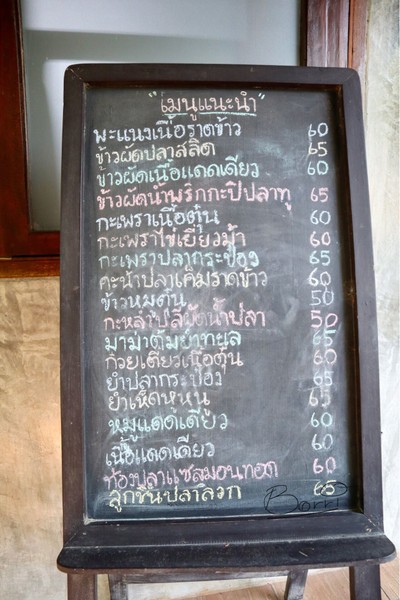 "เมนูแนะนำ"
พะแนงเนื้อราดข้าว 60
ข้าวผัดปลาสลิด 65
ข้าวผัดเนื้อแดดเดียว 60
ข้าวผัดน้ำพริกกะปิปลาทู 65
กะเพราเนื้อตุ๋น 60
กะเพราไข่เยี่ยวม้า 60
กะเพราปลากระป๋อง 65
คะน้าปลาเค็มราดข้าว 60
ข้าวหมูตุ๋น 50
กะหล่ำปลีผัดน้ำปลา 50
มาม่าต้มยำทะเล 65
ก๋วยเตี๋ยวเนื้อตุ๋น 60
ยำปลากระป๋อง 65
ยำเห็ดหูหนู 65
หมูแดดเดียว 60
เนื้อแดดเดียว 60
ท้องปลาแซลมอนทอด 60
ลูกชิ้นปลาลวก 65